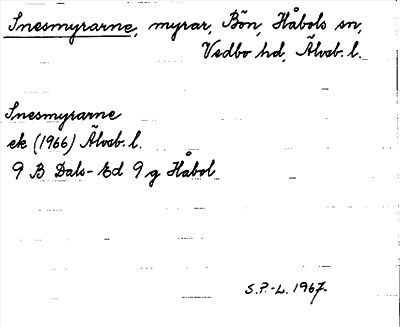 Snesmyrarne, myrar, Bön, Håbols sn,
Vedbo hd, Älvsb. l.
Snesmyrarne
ek (1966) Älvsb. l.
9 B Dals-Ed 9 g Håbol
S.P.-L. 1967.